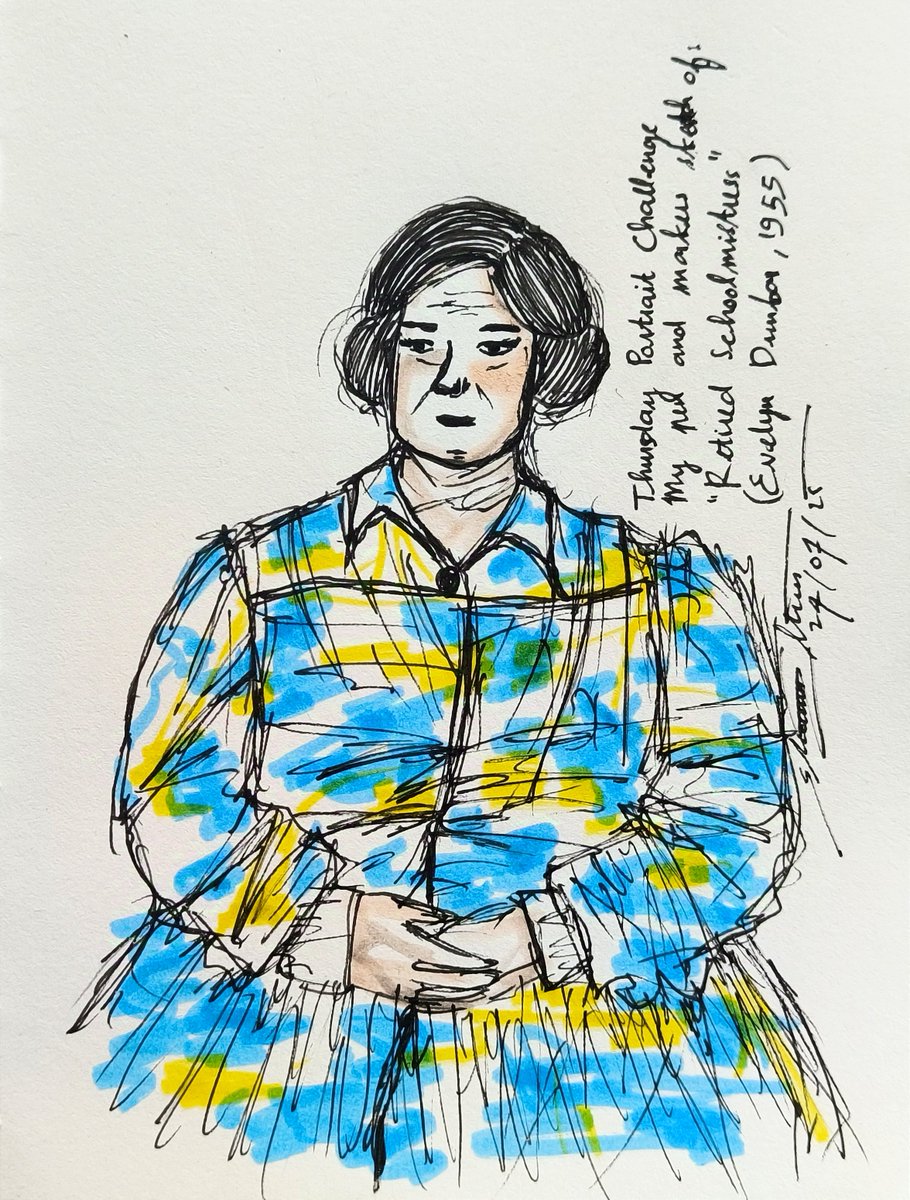 Thursday Portrait Challenge
My pen and markers sketch of:
"Retired Schoolmistress"
(Evelyn Dunbar, 1955)
24/07/25